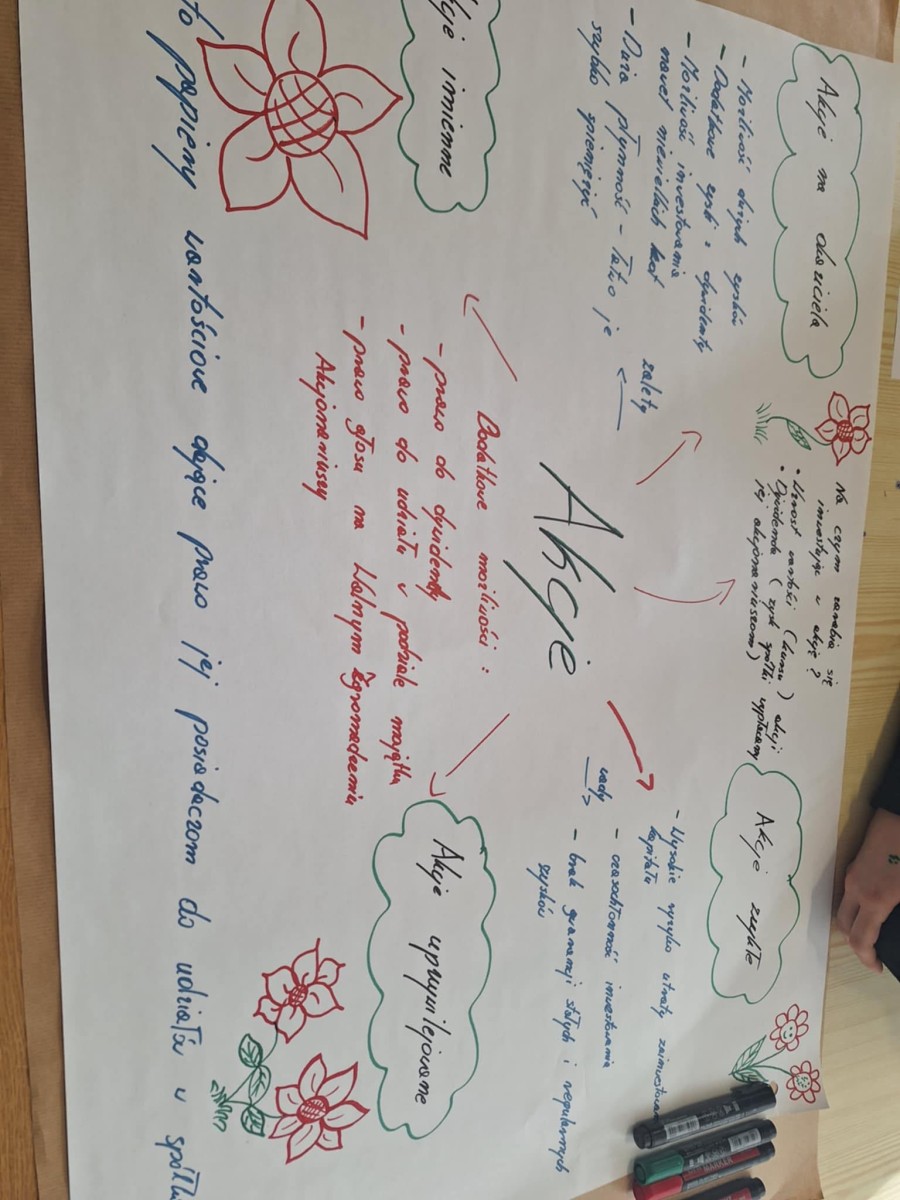 Akcje na okaziciela
- Możliwość dużych zysków
- Dodatkowe zyski z dywidenty
- Możliwość inwestowania
nawet niewielkich kwot
- Duża płynność - łatwo je
szybko spieniężyć
zalety
Na czym zarabia się
inwestując w akcje?
• Wzrost wartości (kursu) akcji
• Dywidenda (zysk spółki wypłacany
jej akcjonariuszom)
Akcje zwykłe
Akcje
wady
- Wysokie ryzyko utraty
kapitału
- czasochłonność inwestowania
- brak gwarancji stałych i regularnych
zysków
imienne
Dodatkowe możliwości:
- prawo do dywidenty
- prawo do udziału w podziale majątku
- prawo głosu na Walnym Zgromadzeniu
Akcjonariuszy
Akcje uprzywilejowane
to papiery wartościowe dające prawo jej posiadaczom do udziału w